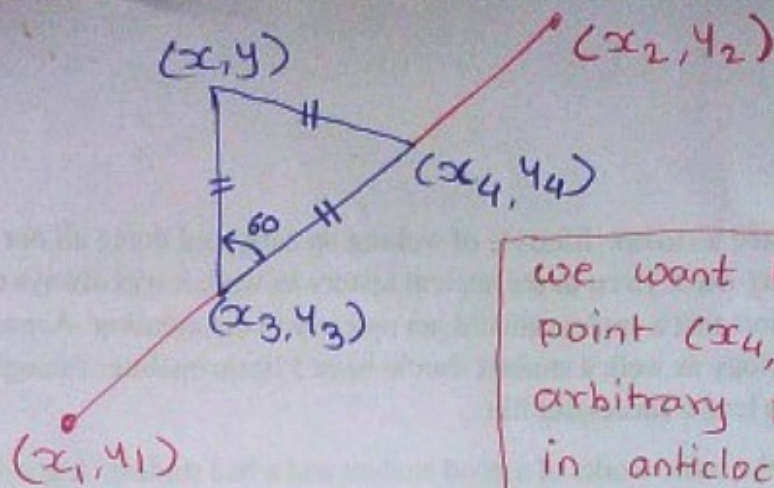 (x,y)
(x2,y2)
(x4,y4)
60
(x3,y3)
(x1,y1)
we want
point (x4,
arbitrary
in anticloc